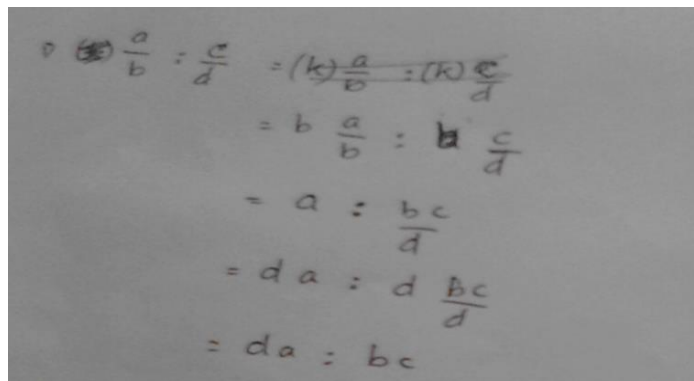 a/b : c/d = (k) a/b : (k) c/d
= b a/b : b c/d
= a : bc/d
= da : d bc/d
= da : bc